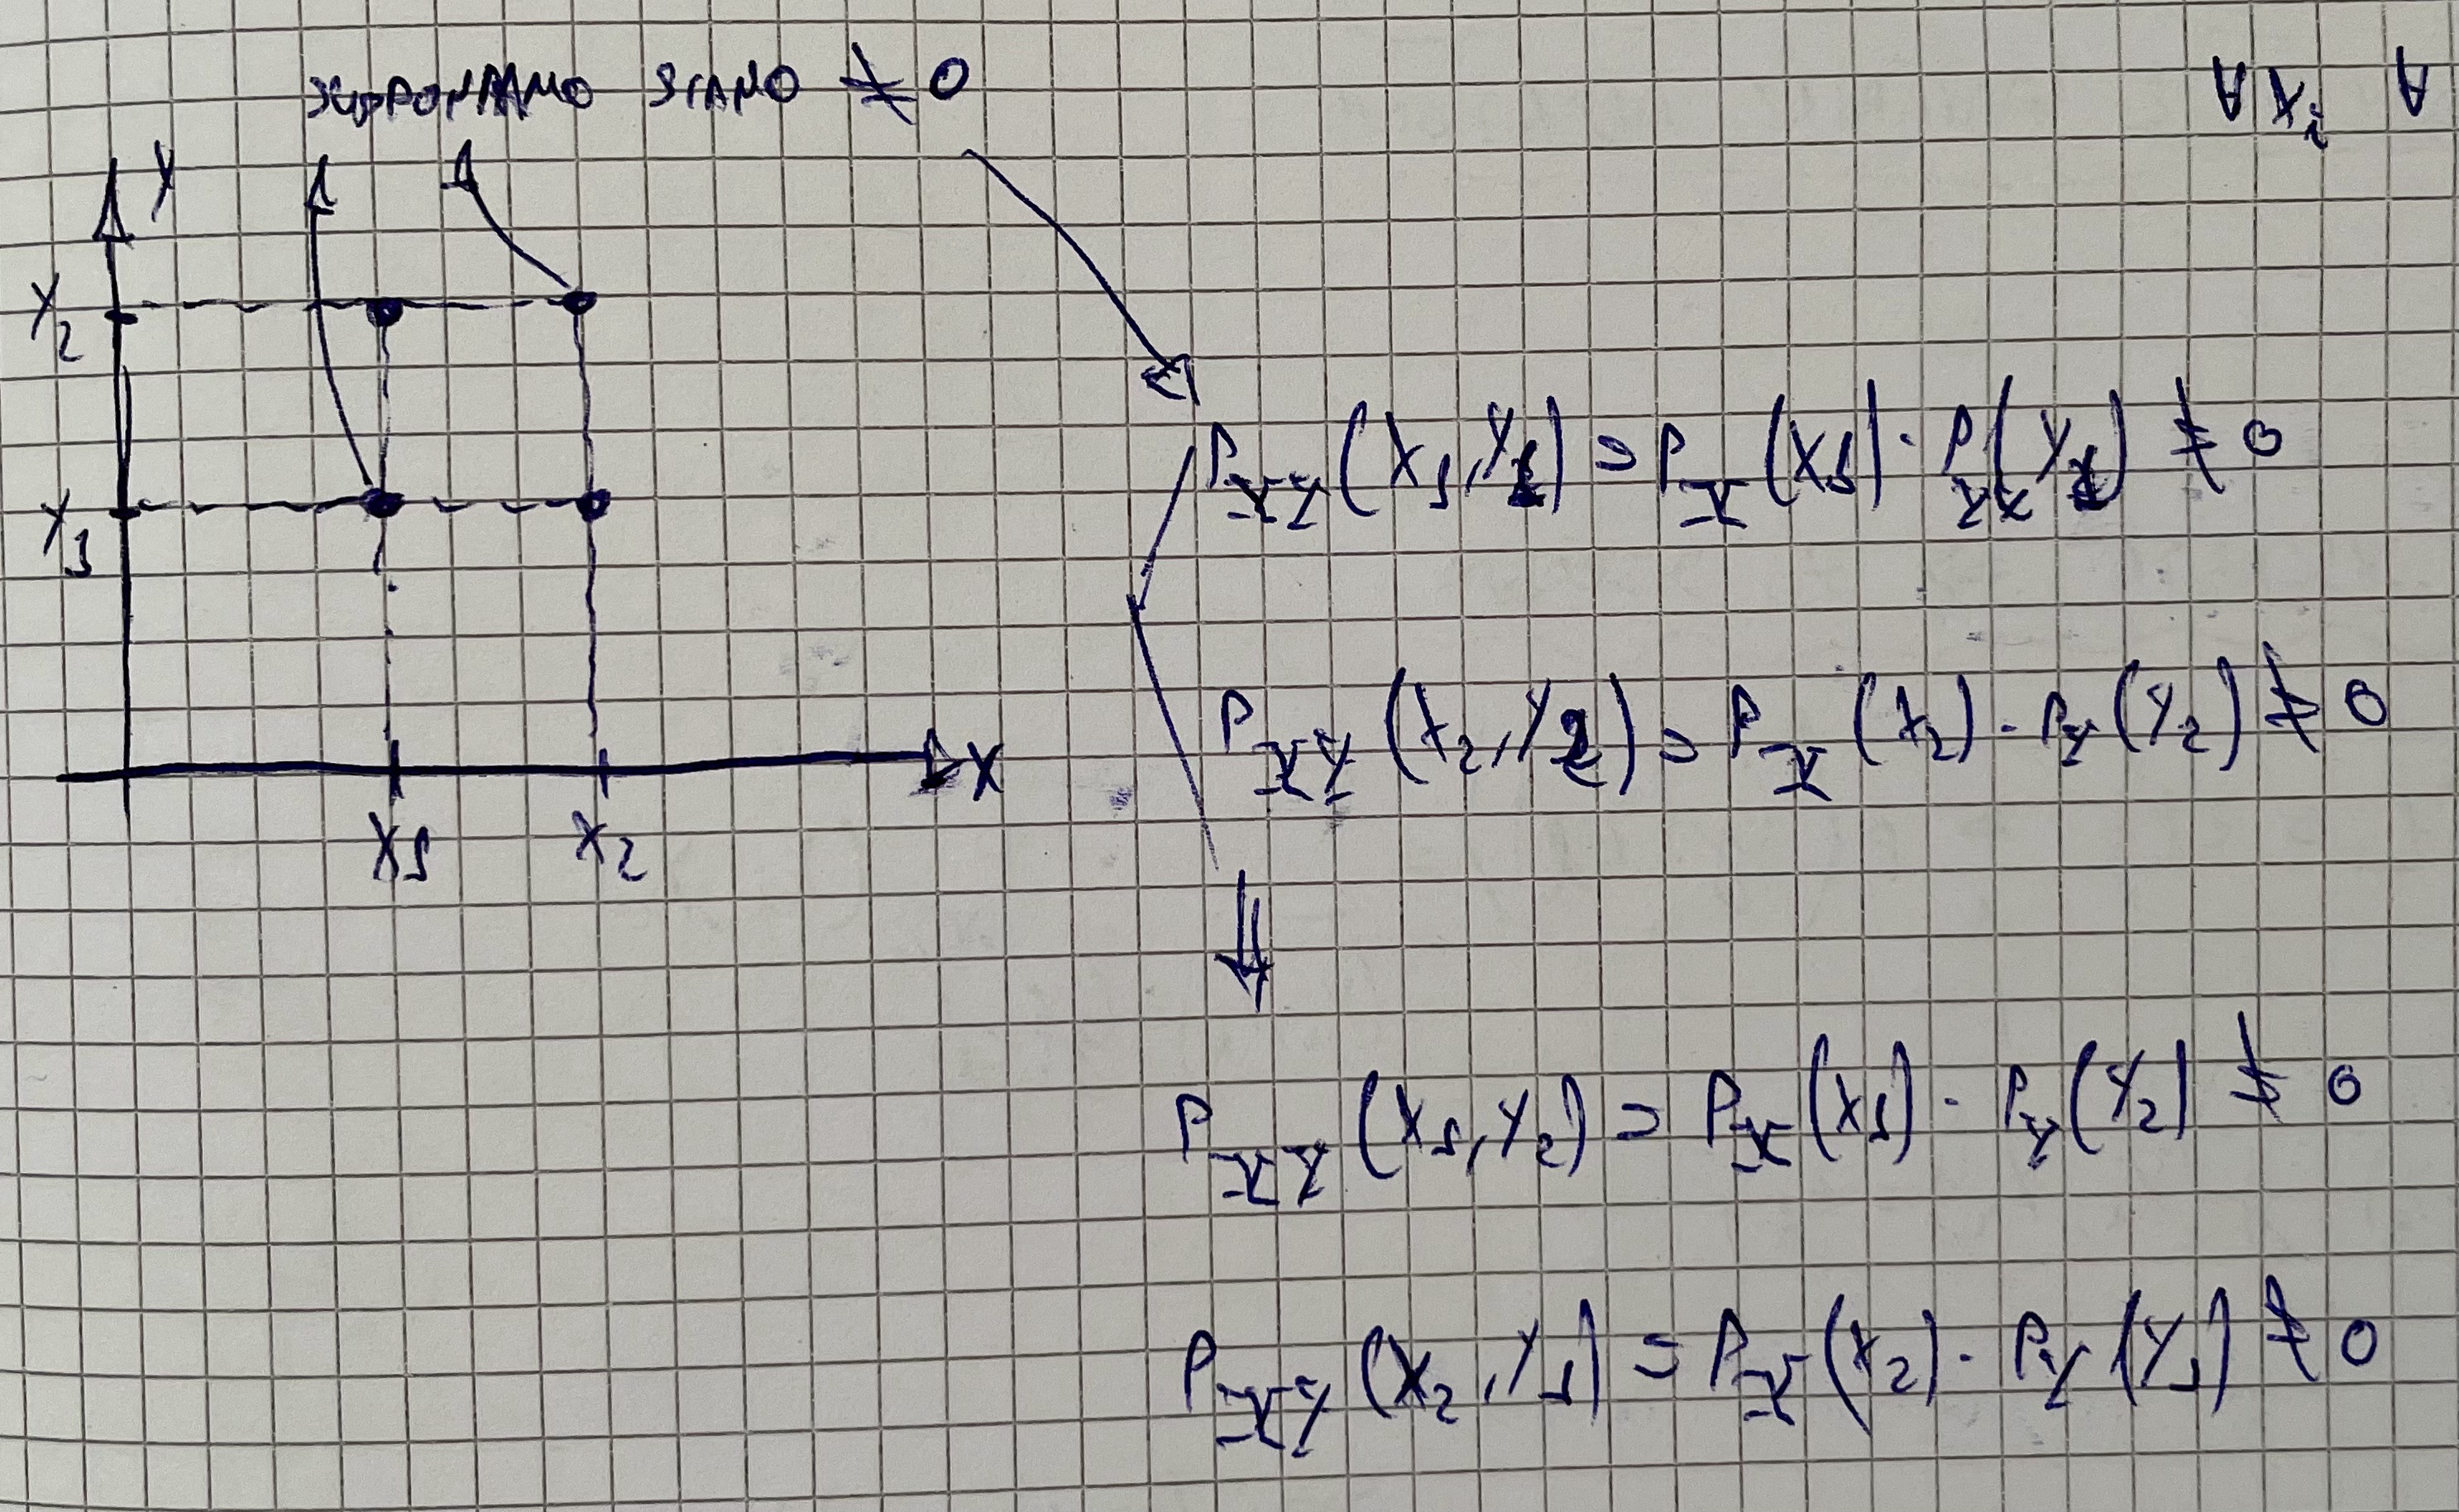 SUPPONIAMO SIANO ≠ 0
∀ x_i ∀
y
y_2
y_1
x
x_1 x_2
P_XY (x_1, y_1) = P_X (x_1) · P_Y (y_1) ≠ 0
P_XY (x_2, y_2) = P_X (x_2) · P_Y (y_2) ≠ 0
⇓
P_XY (x_1, y_2) = P_X (x_1) · P_Y (y_2) ≠ 0
P_XY (x_2, y_1) = P_X (x_2) · P_Y (y_1) ≠ 0